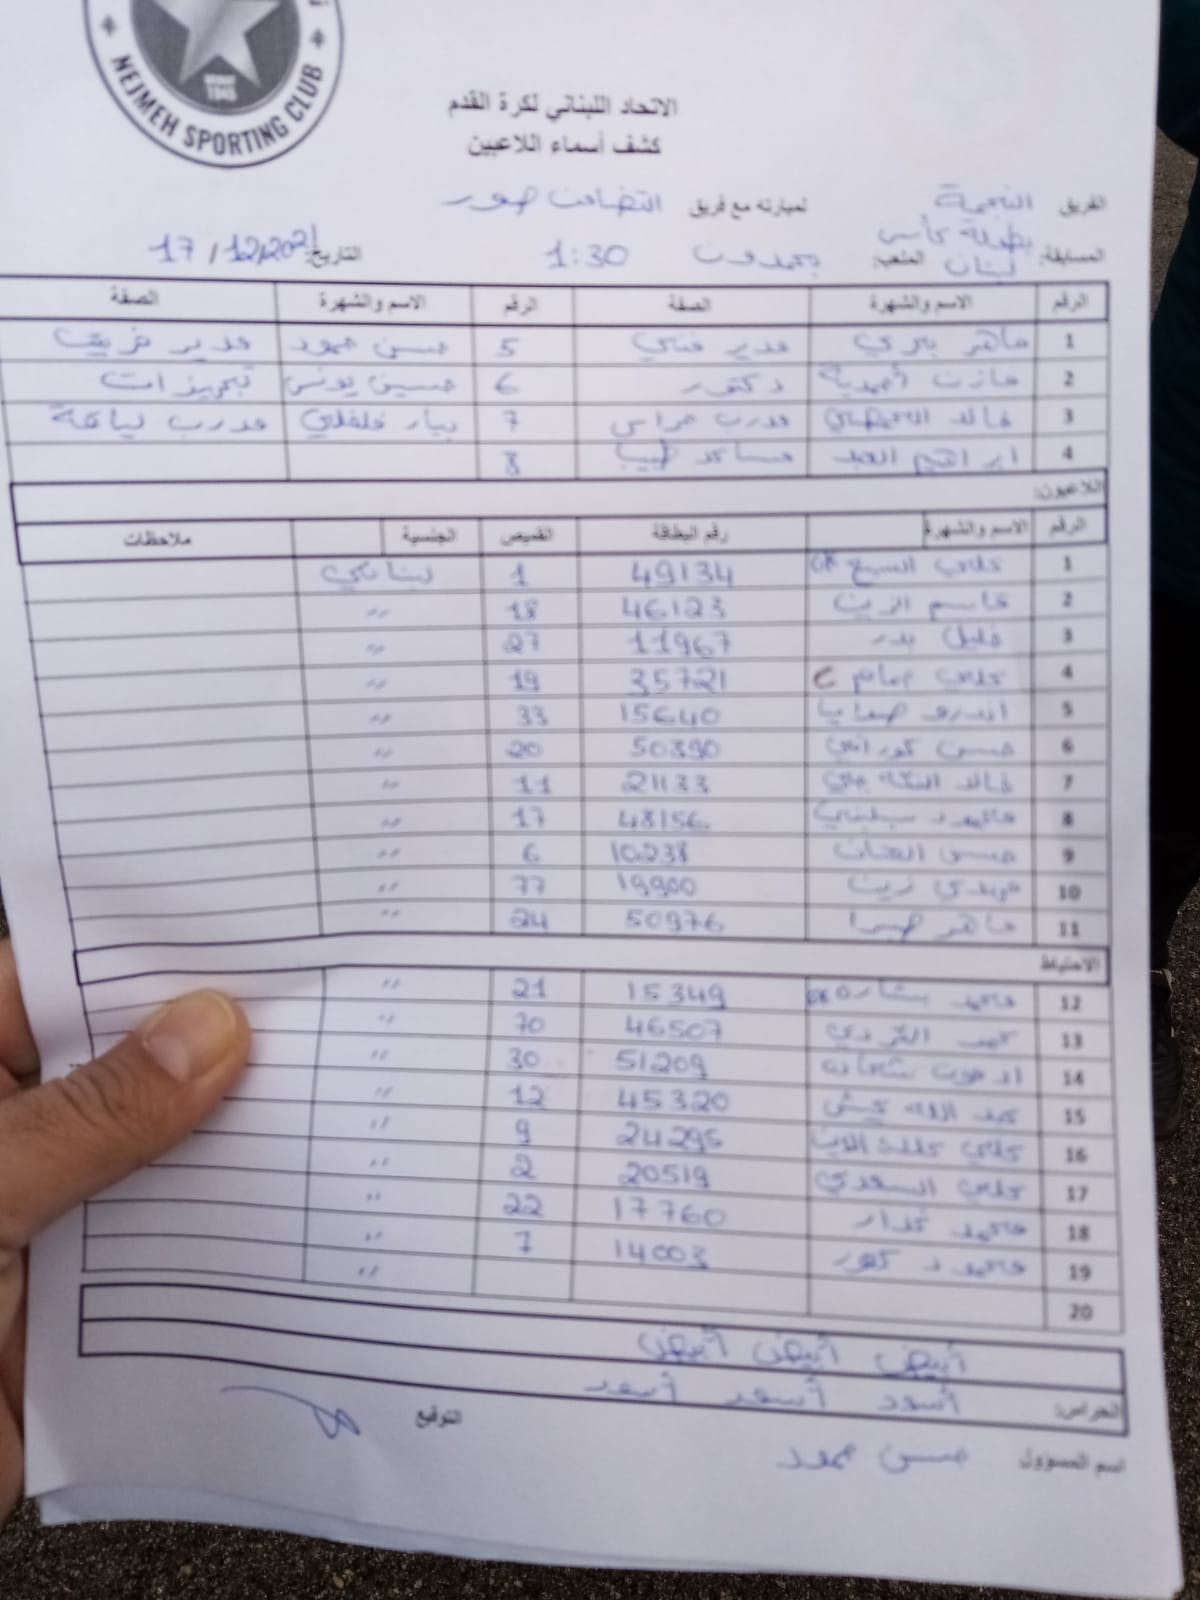 NEJMEH SPORTING CLUB
الاتحاد اللبناني لكرة القدم
كشف أسماء اللاعبين
الفريق النجمة لمبارته مع فريق التضامن صور
المسابقة: بطولة كأس لبنان الملعب: بحمدون 1:30 التاريخ: 17/12/2021
الرقم الاسم والشهرة الصفة الرقم الاسم والشهرة الصفة
1 ماهر بيري مدير فني 5 حسن حمود مدير فريق
2 مازن أحمدية دكتور 6 حسين يونس تجهيزات
3 خالد مدرب حراس 7 بيار مدرب لياقة
4 ابراهيم العبد مساعد طبيب 8
اللاعبون:
الرقم الاسم والشهرة رقم البطاقة القميص الجنسية ملاحظات
1 علي السبع GK 49134 1 لبناني
2 قاسم الزين 46123 18 "
3 خليل بدر 11967 27 "
4 علي حمام C 35721 19 "
5 اندرو صوايا 15640 33 "
6 حسن كوراني 50890 20 "
7 خالد 21133 11 "
8 محمود سبليني 48156 17 "
9 حسن العنان 10238 6 "
10 مهدي زين 19900 77 "
11 ماهر صبرا 50976 24 "
الاحتياط
12 محمد بشارة GK 15349 21 "
13 الكردي 46507 70 "
14 اندرون شحاده 51209 30 "
15 عبد الله عيش 45320 12 "
16 علي علاء الدين 24295 9 "
17 علي السعدي 20519 2 "
18 محمد غدار 17760 22 "
19 محمود كعور 14003 7 "
20
أبيض أبيض أبيض
الحراس: أسود أسود أسود
اسم المسؤول حسن حمود التوقيع